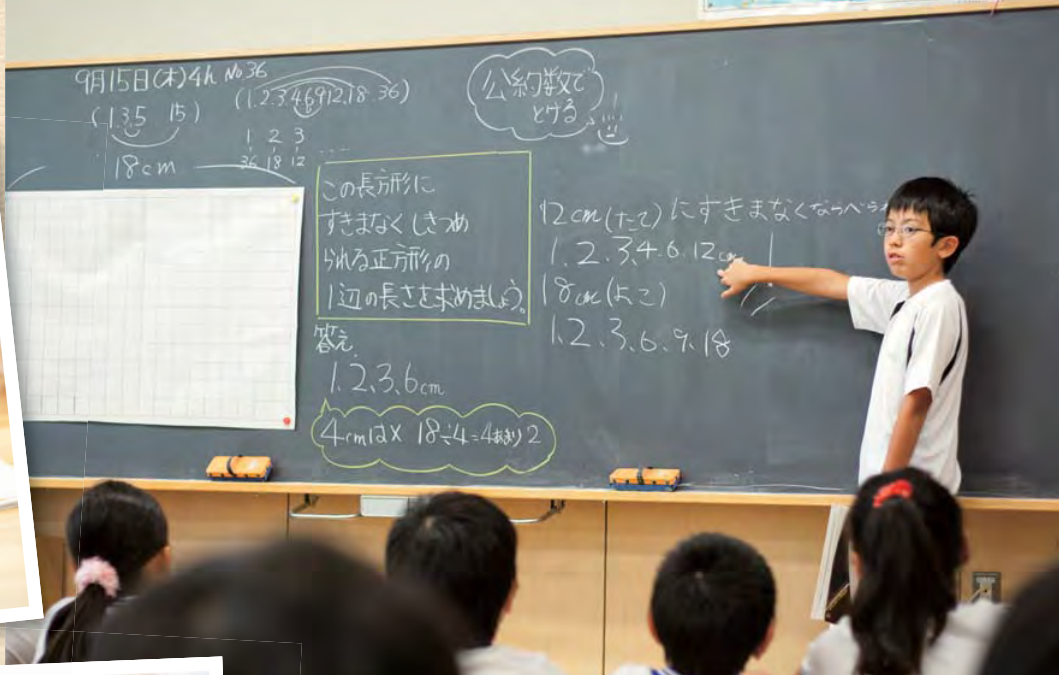 9月15日(木)4h No36
(1.3.5 15)
(1.2.3.4.6.9.12.18.36)
1 2 3
36 18 12 ....
18cm
公約数で
とける
この長方形に
すきまなくしきつめ
られる正方形の
1辺の長さを求めましょう。
答え
1.2.3.6cm
4cmは× 18÷4=4あまり2
12cm(たて)にすきまなくならべ
1.2.3.4.6.12cm
18cm(よこ)
1.2.3.6.9.18